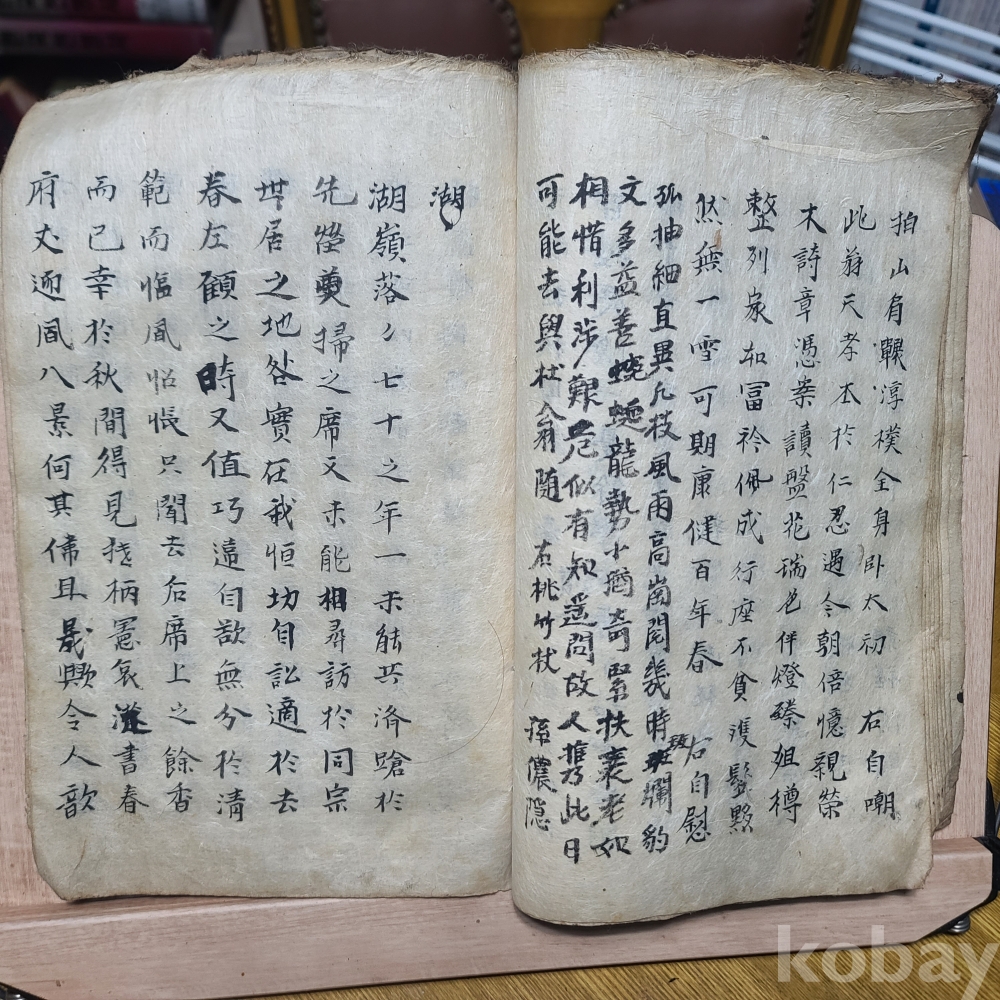 拍山肩㔢淳樸全身卧太初 右自嘲
此翁天孝本於仁忍過今朝倍憶親榮
木詩章憑案讀盤花瑞色伴燈臻姐樽
整列家知冨衿佩成行座不貧渡鬂㸃
然無一雪可期康健百年春 右自慰
孤抽細直異凡枝風雨高崗閱幾時斑斑爛豹
文多益善蜿蜒龍勢小猶奇緊扶衰老如
相惜利涉艱危似有知遥問故人推乃此日
可能去與杖翁随 右桃竹杖 孫濃隐
湖
湖嶺落〻七十之年一未能共済蹌於
先塋奠掃之席又未能相尋訪於同宗
世居之地咎實在我恒切自訟適於去
春左顧之時又值巧違自歎無分於清
範而臨風怊悵只聞去后席上之餘香
而已幸於秋間得見栍柄憲哀滋書春
府丈迎鳳八景何其佛且晟歟令人歆
kobay